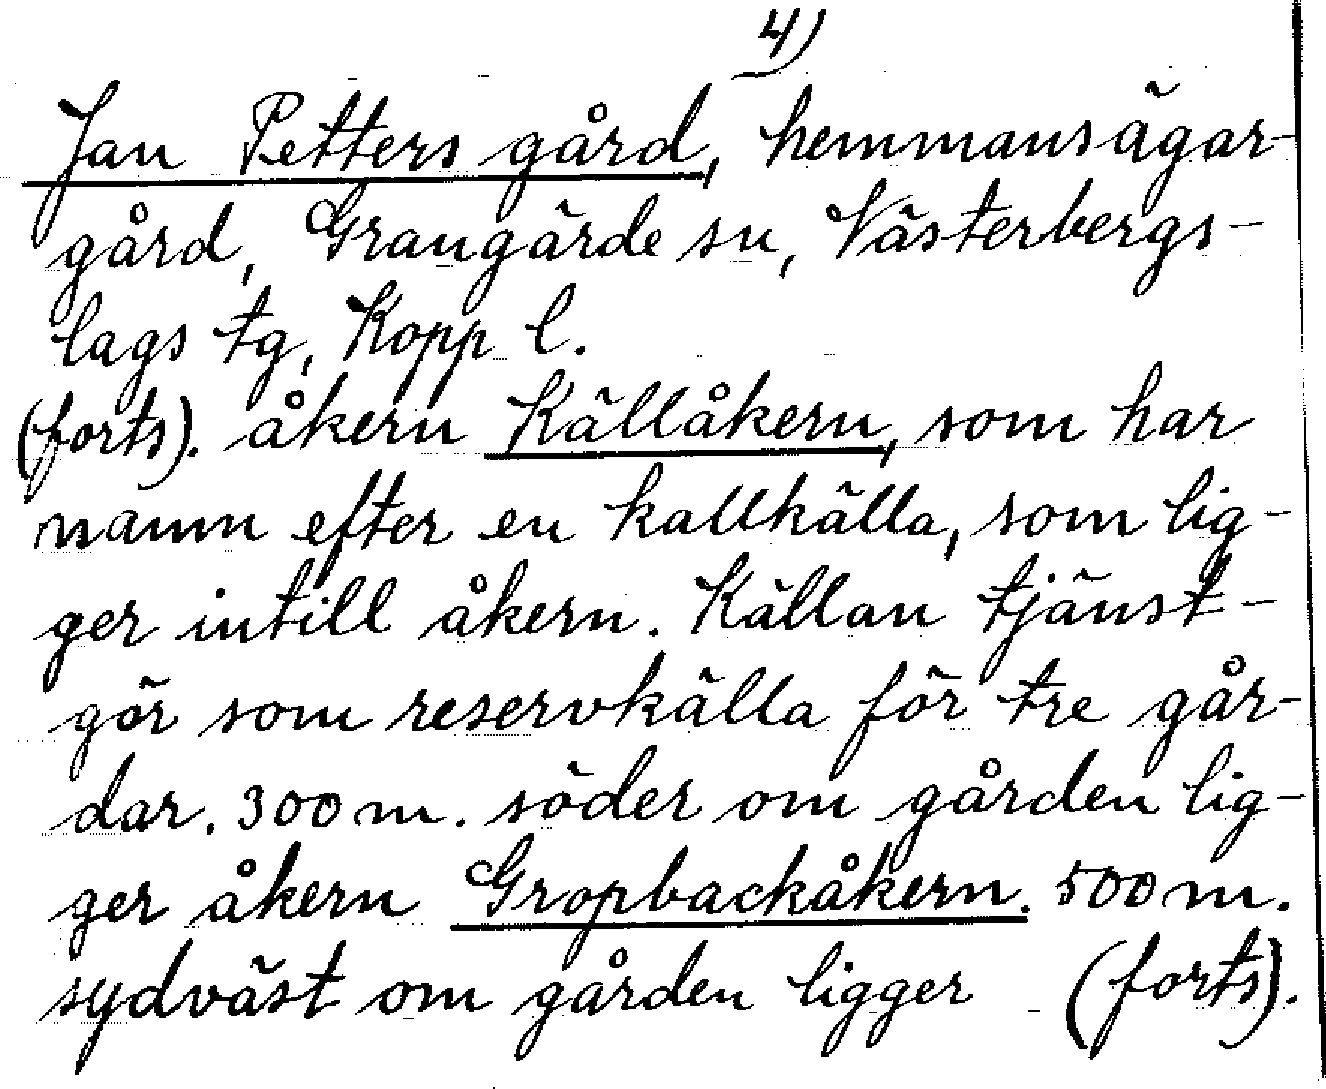 4)
Jan Petters gård, hemmansägar-
gård, Grangärde sn, Västerbergs-
lags tg, Kopp l.
(forts). åkern Källåkern, som har
namn efter en kallkälla, som lig-
ger intill åkern. Källan tjänst-
gör som reservkälla för tre går-
dar. 300 m. söder om gården lig-
ger åkern Gropbackåkern. 500 m.
sydväst om gården ligger (forts).